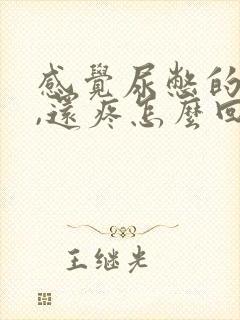 感覺尿憋的
,還疼怎麼回
王继光